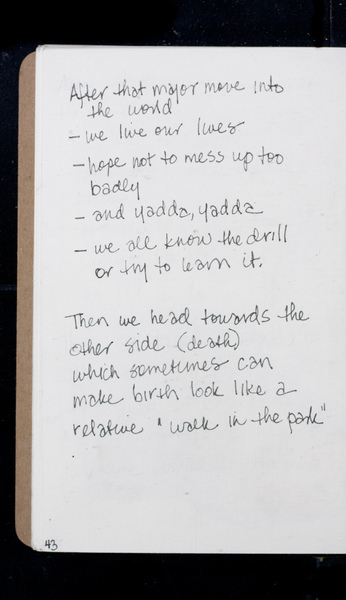 After that major move into
the world
- we live our lives
- hope not to mess up too
badly
- and yadda, yadda
- we all know the drill
or try to learn it.
Then we head towards the
other side (death)
which sometimes can
make birth look like a
relative "walk in the park"
.
43